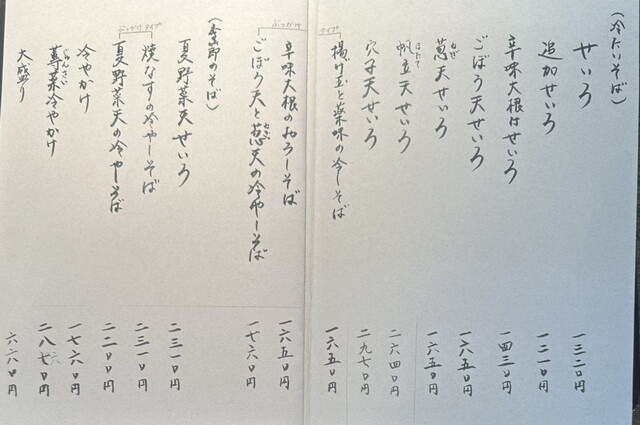 （冷たいそば）
せいろ 一三二〇円
追加せいろ 一二一〇円
辛味大根付せいろ 一四三〇円
ごぼう天せいろ 一六五〇円
葱天せいろ 一六五〇円
ねぎ
帆立天せいろ 二六四〇円
ほたて
穴子天せいろ 二九七〇円
ぶっかけタイプ
揚げ玉と薬味の冷しそば 一六五〇円
辛味大根のおろしそば 一六五〇円
ごぼう天と葱天の冷やしそば 一七六〇円
ねぎ
（季節のそば）
夏野菜天せいろ 二三一〇円
ぶっかけタイプ
焼なすの冷やしそば 二三一〇円
夏野菜天の冷やしそば 二二〇〇円
冷やかけ 一七六〇円
蓴菜冷やかけ
じゅんさい
大盛り 六六〇円